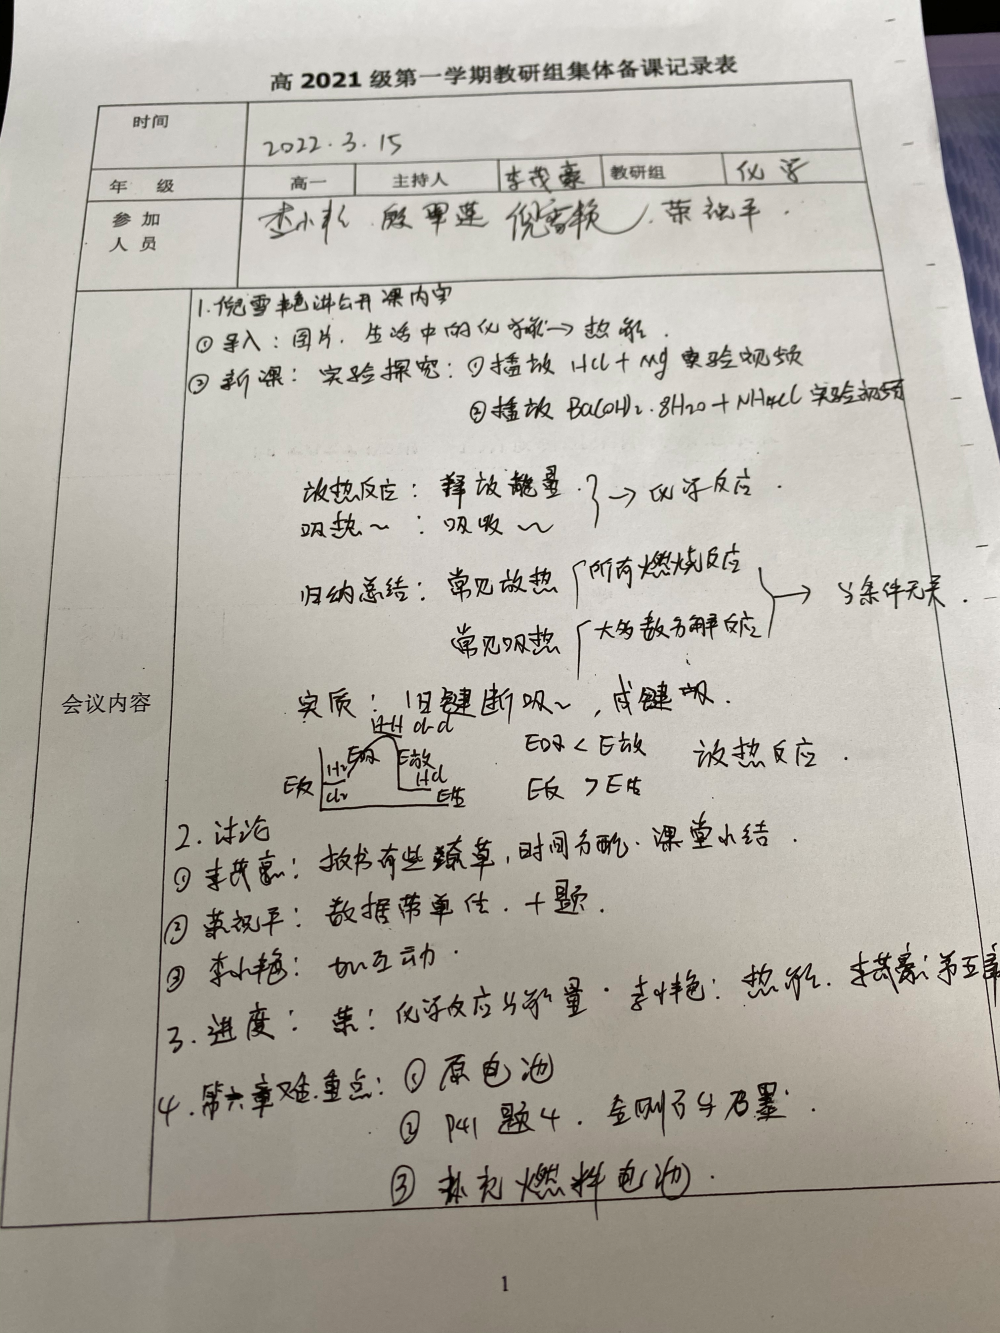 高 2021 级第一学期教研组集体备课记录表
时间 2022.3.15
年 级 高一 主持人 李茂豪 教研组 化学
参加人员 李小艳 殷军莲 倪雪艳 荣祝平.
会议内容
1.倪雪艳讲公开课内容
①导入:图片.生活中的化学能→热能.
②新课:实验探究:①播放 HCl+Mg 实验视频
②播放 Ba(OH)₂·8H₂O+NH₄Cl 实验视频
放热反应:释放能量.}→化学反应.
吸热~:吸收~
归纳总结:常见放热{所有燃烧反应
常见吸热{大多数分解反应}→与条件无关.
实质:旧键断吸~,成键放.
H-H Cl-Cl
E反 H₂ Cl₂ E吸 E放 HCl E生
E吸<E放 放热反应.
E反>E生
2.讨论
①李茂豪:板书有些潦草,时间分配.课堂小结.
②荣祝平:数据带单位.十题.
③李小艳:加互动.
3.进度:荣:化学反应与能量.李小艳:热能.李茂豪:第五章
4.第六章难.重点:①原电池
②P41 题4.金刚石与石墨.
③补充燃料电池.
1